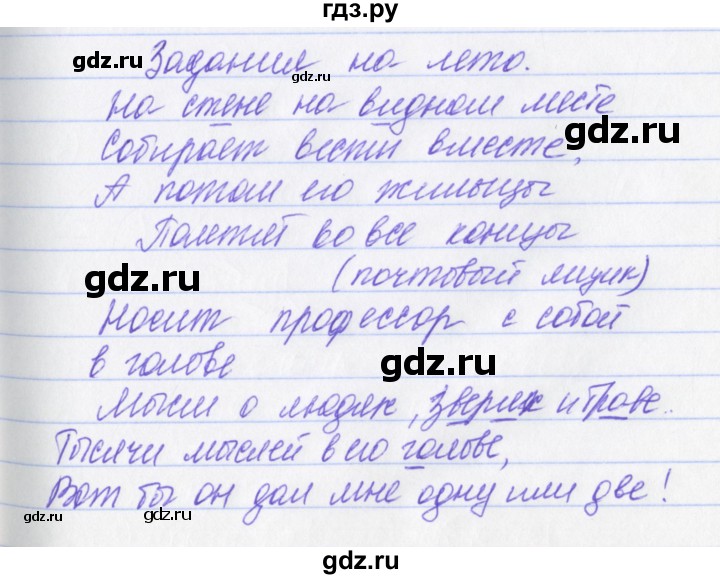 гдз.ру
gdz.ru
Задания на лето.
gdz.ru
На стене на видном месте
gdz.ru
Собирает вести вместе,
А потом его жильцы
Полетят во все концы
gdz.ru
(почтовый ящик)
Носит профессор с собой
в голове
gdz.ru
Мысли о людях, зверях и траве.
Тысячи мыслей в его голове,
gdz.ru
Вот бы он дал мне одну или две!
gdz.ru
gdz.ru
gdz.ru